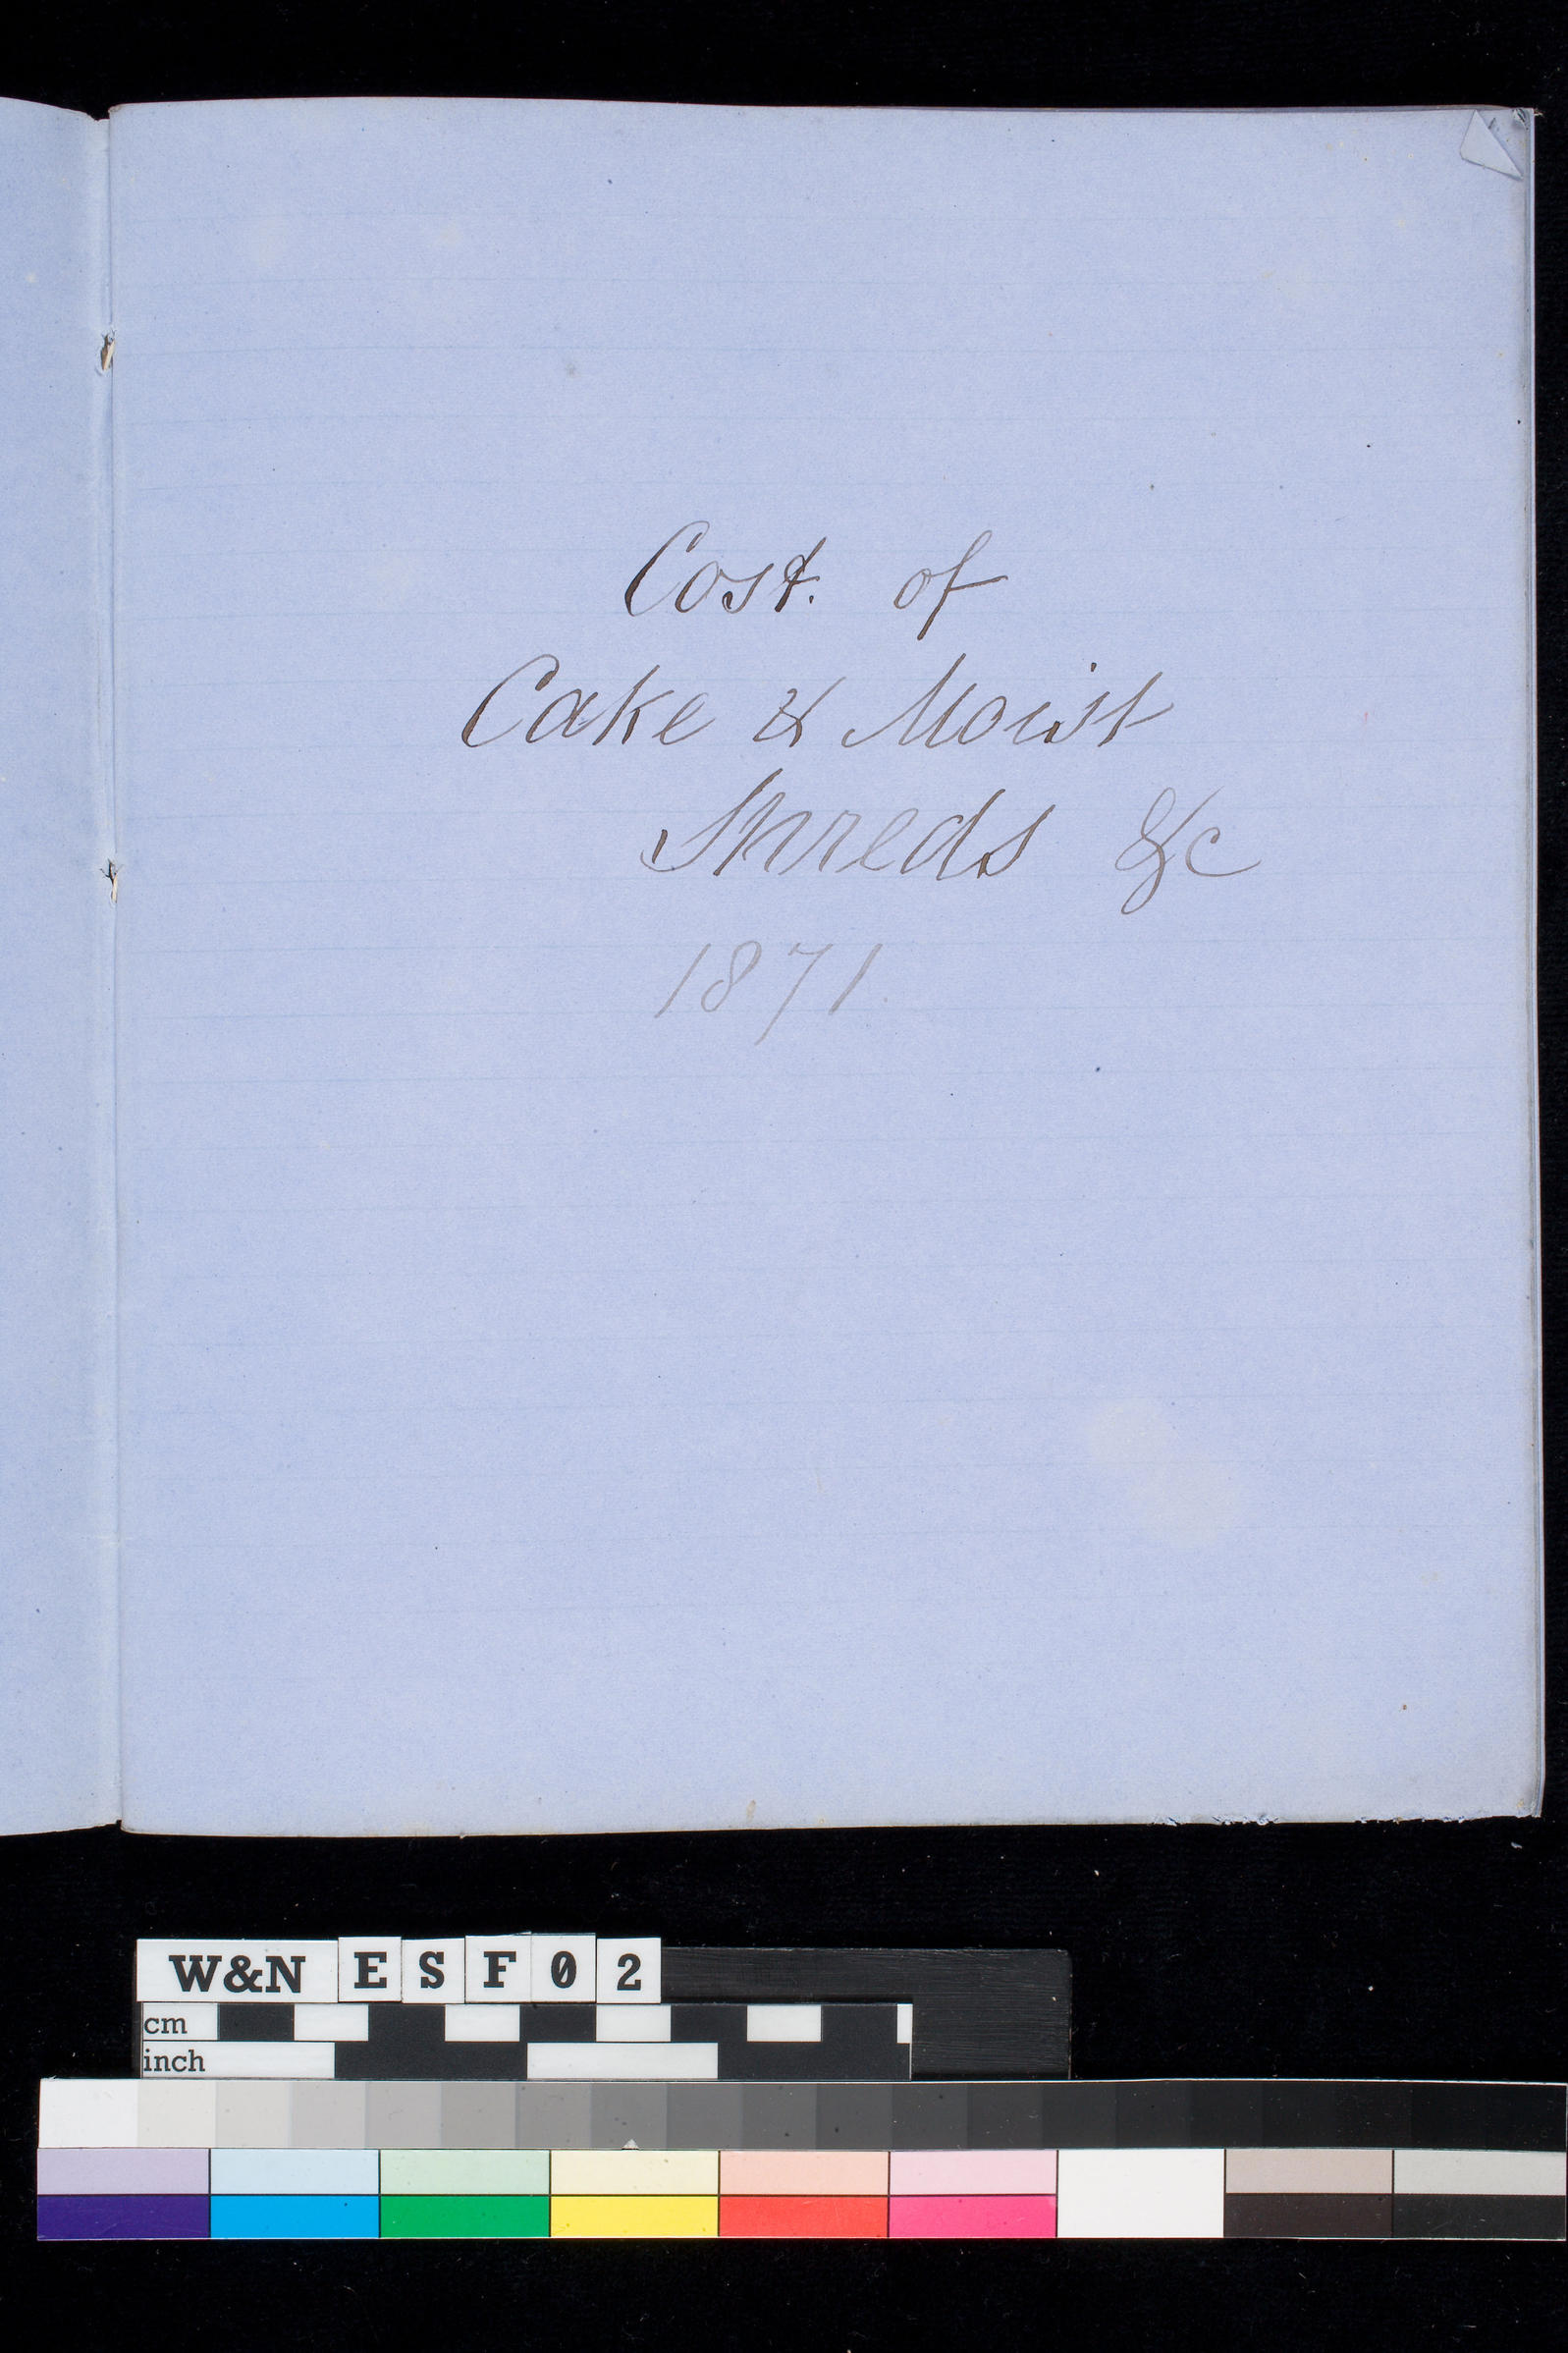 Cost. of
Cake & Moist
Shreds &c
1871.
W&N ESF02
cm
inch